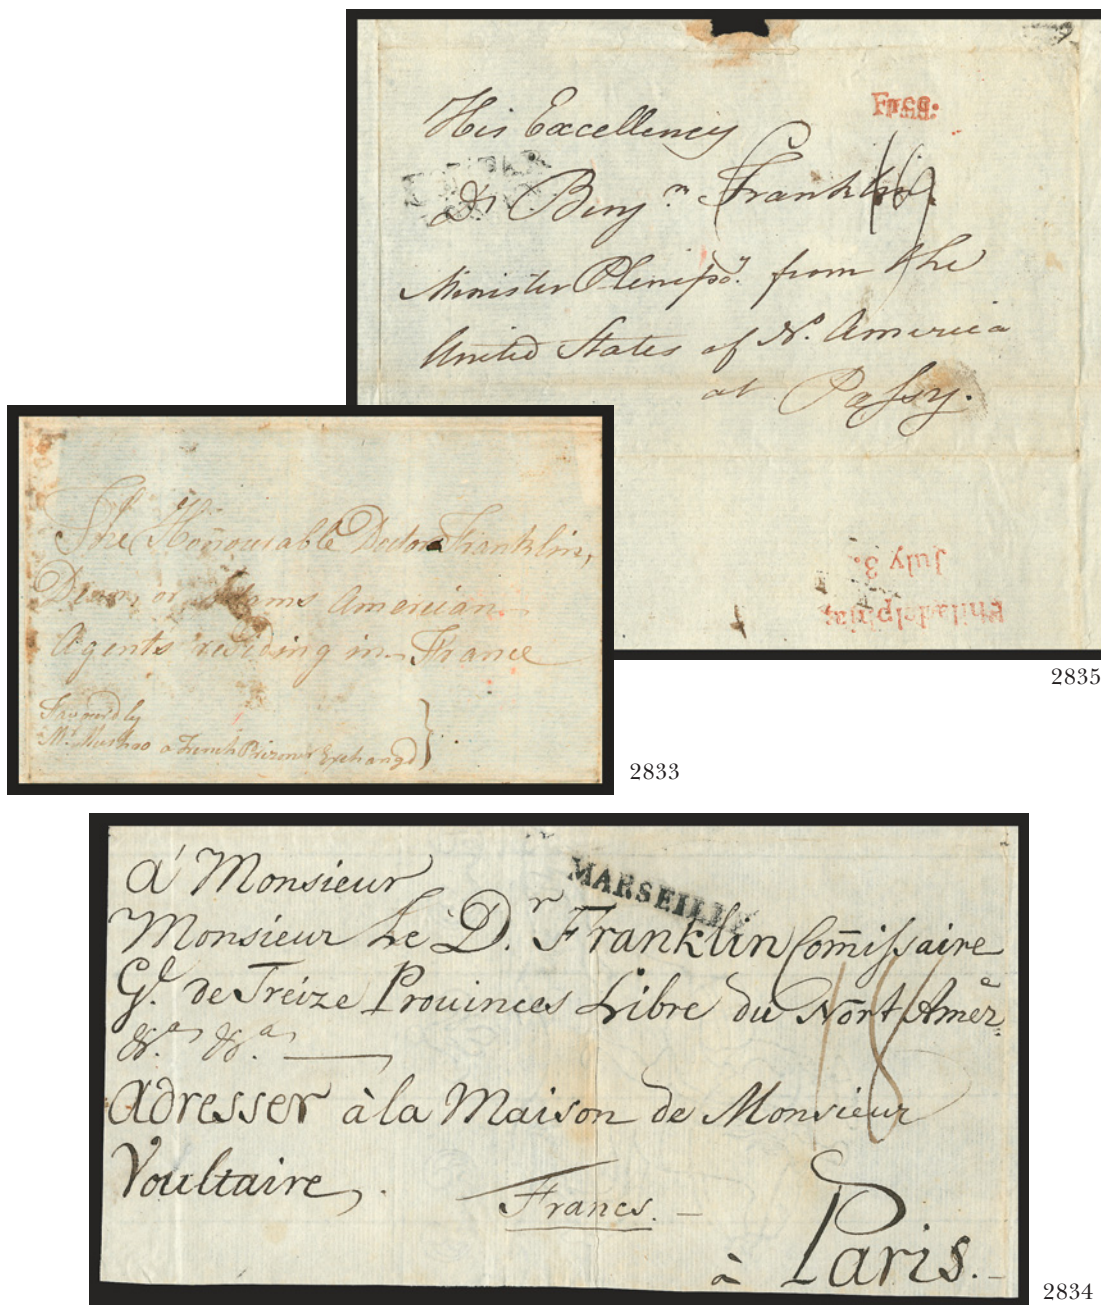 Free.
His Excellency
Dr Benjn. Franklin.
Minister Plenipoy. from the
United States of No. America
at Passy.
July 3.
Philadelphia;
2835
The Honourable Doctor Franklin,
Dean, or Adams American
Agents residing in France
Favourd by
Mr. a French Prizoner Exchangd
2833
MARSEILLE
à Monsieur
Monsieur Le Dr. Franklin Com̃issaire
Gl. de Treize Prouinces Libre du Nort Amér.e
&.a &.a
Adresser à la Maison de Monsieur
Voultaire.
Francs.
à Paris.
18
2834